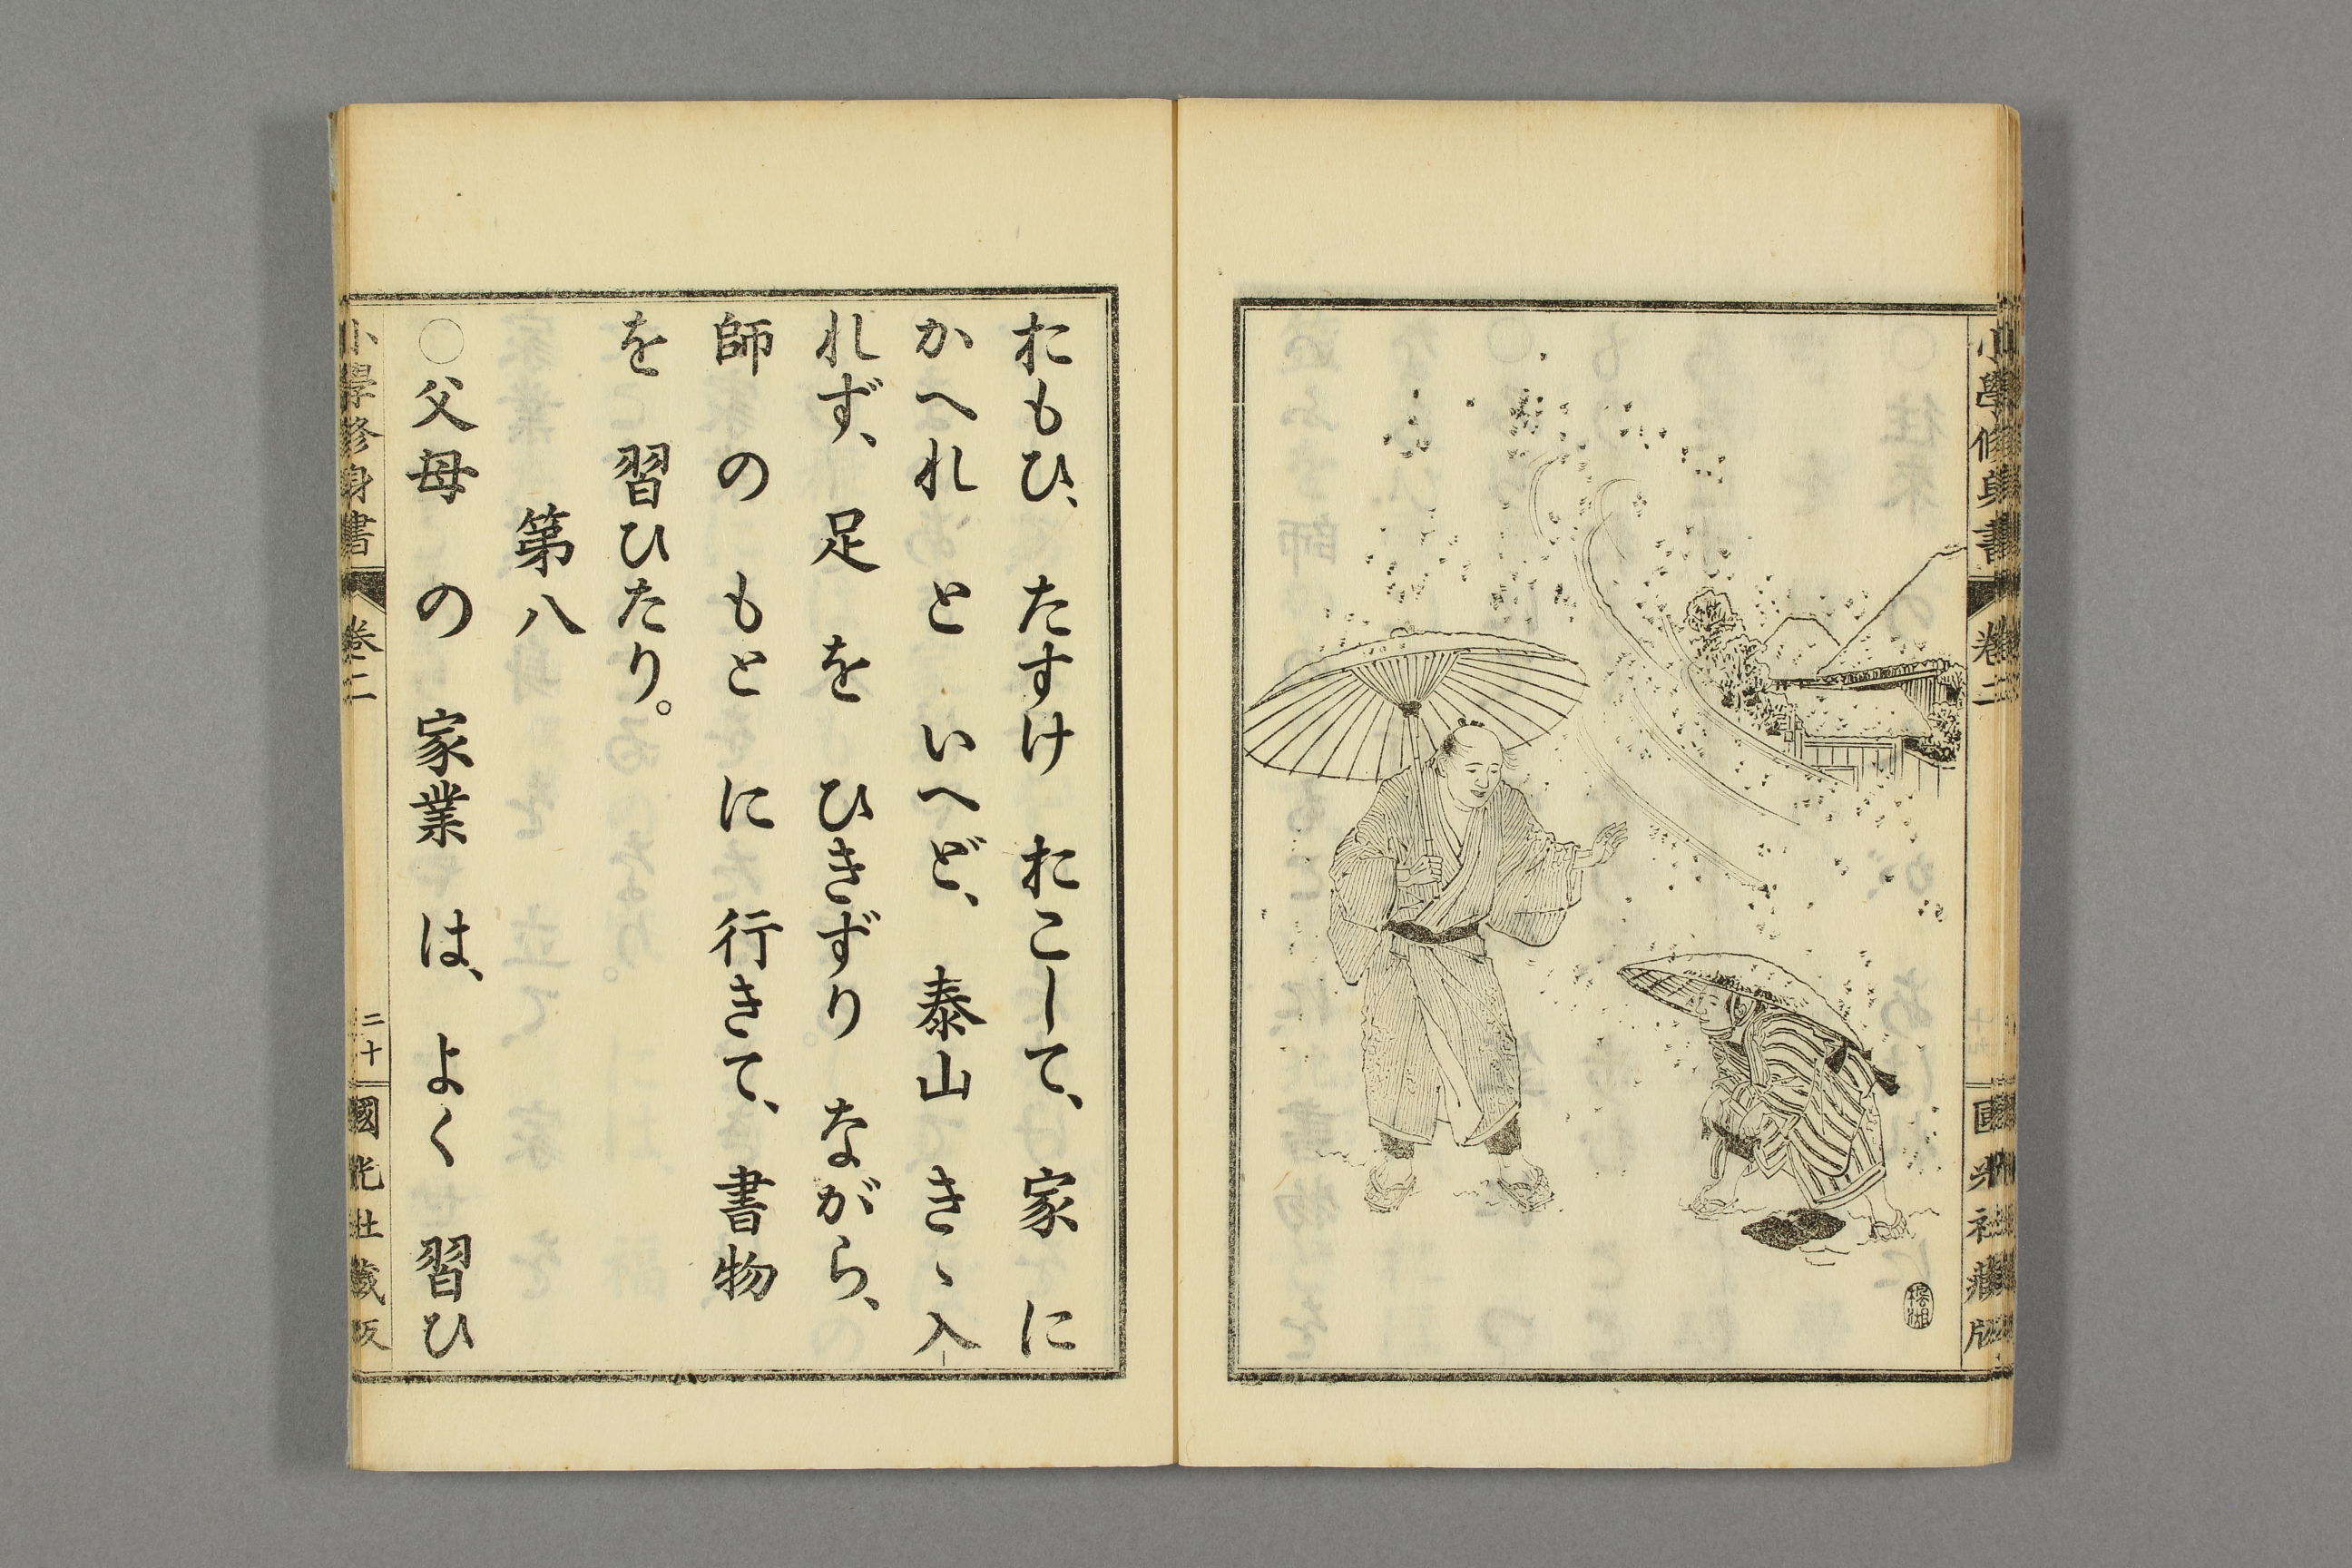 小學修身書 卷二 國光社藏版
おもひ、たすけおこして、家に
かへれといへど、泰山きゝ入
れず、足をひきずりながら、
師のもとに行きて、書物
を習ひたり。
第八
○父母の家業は、よく習ひ
小學修身書 卷二 二十 國光社藏版